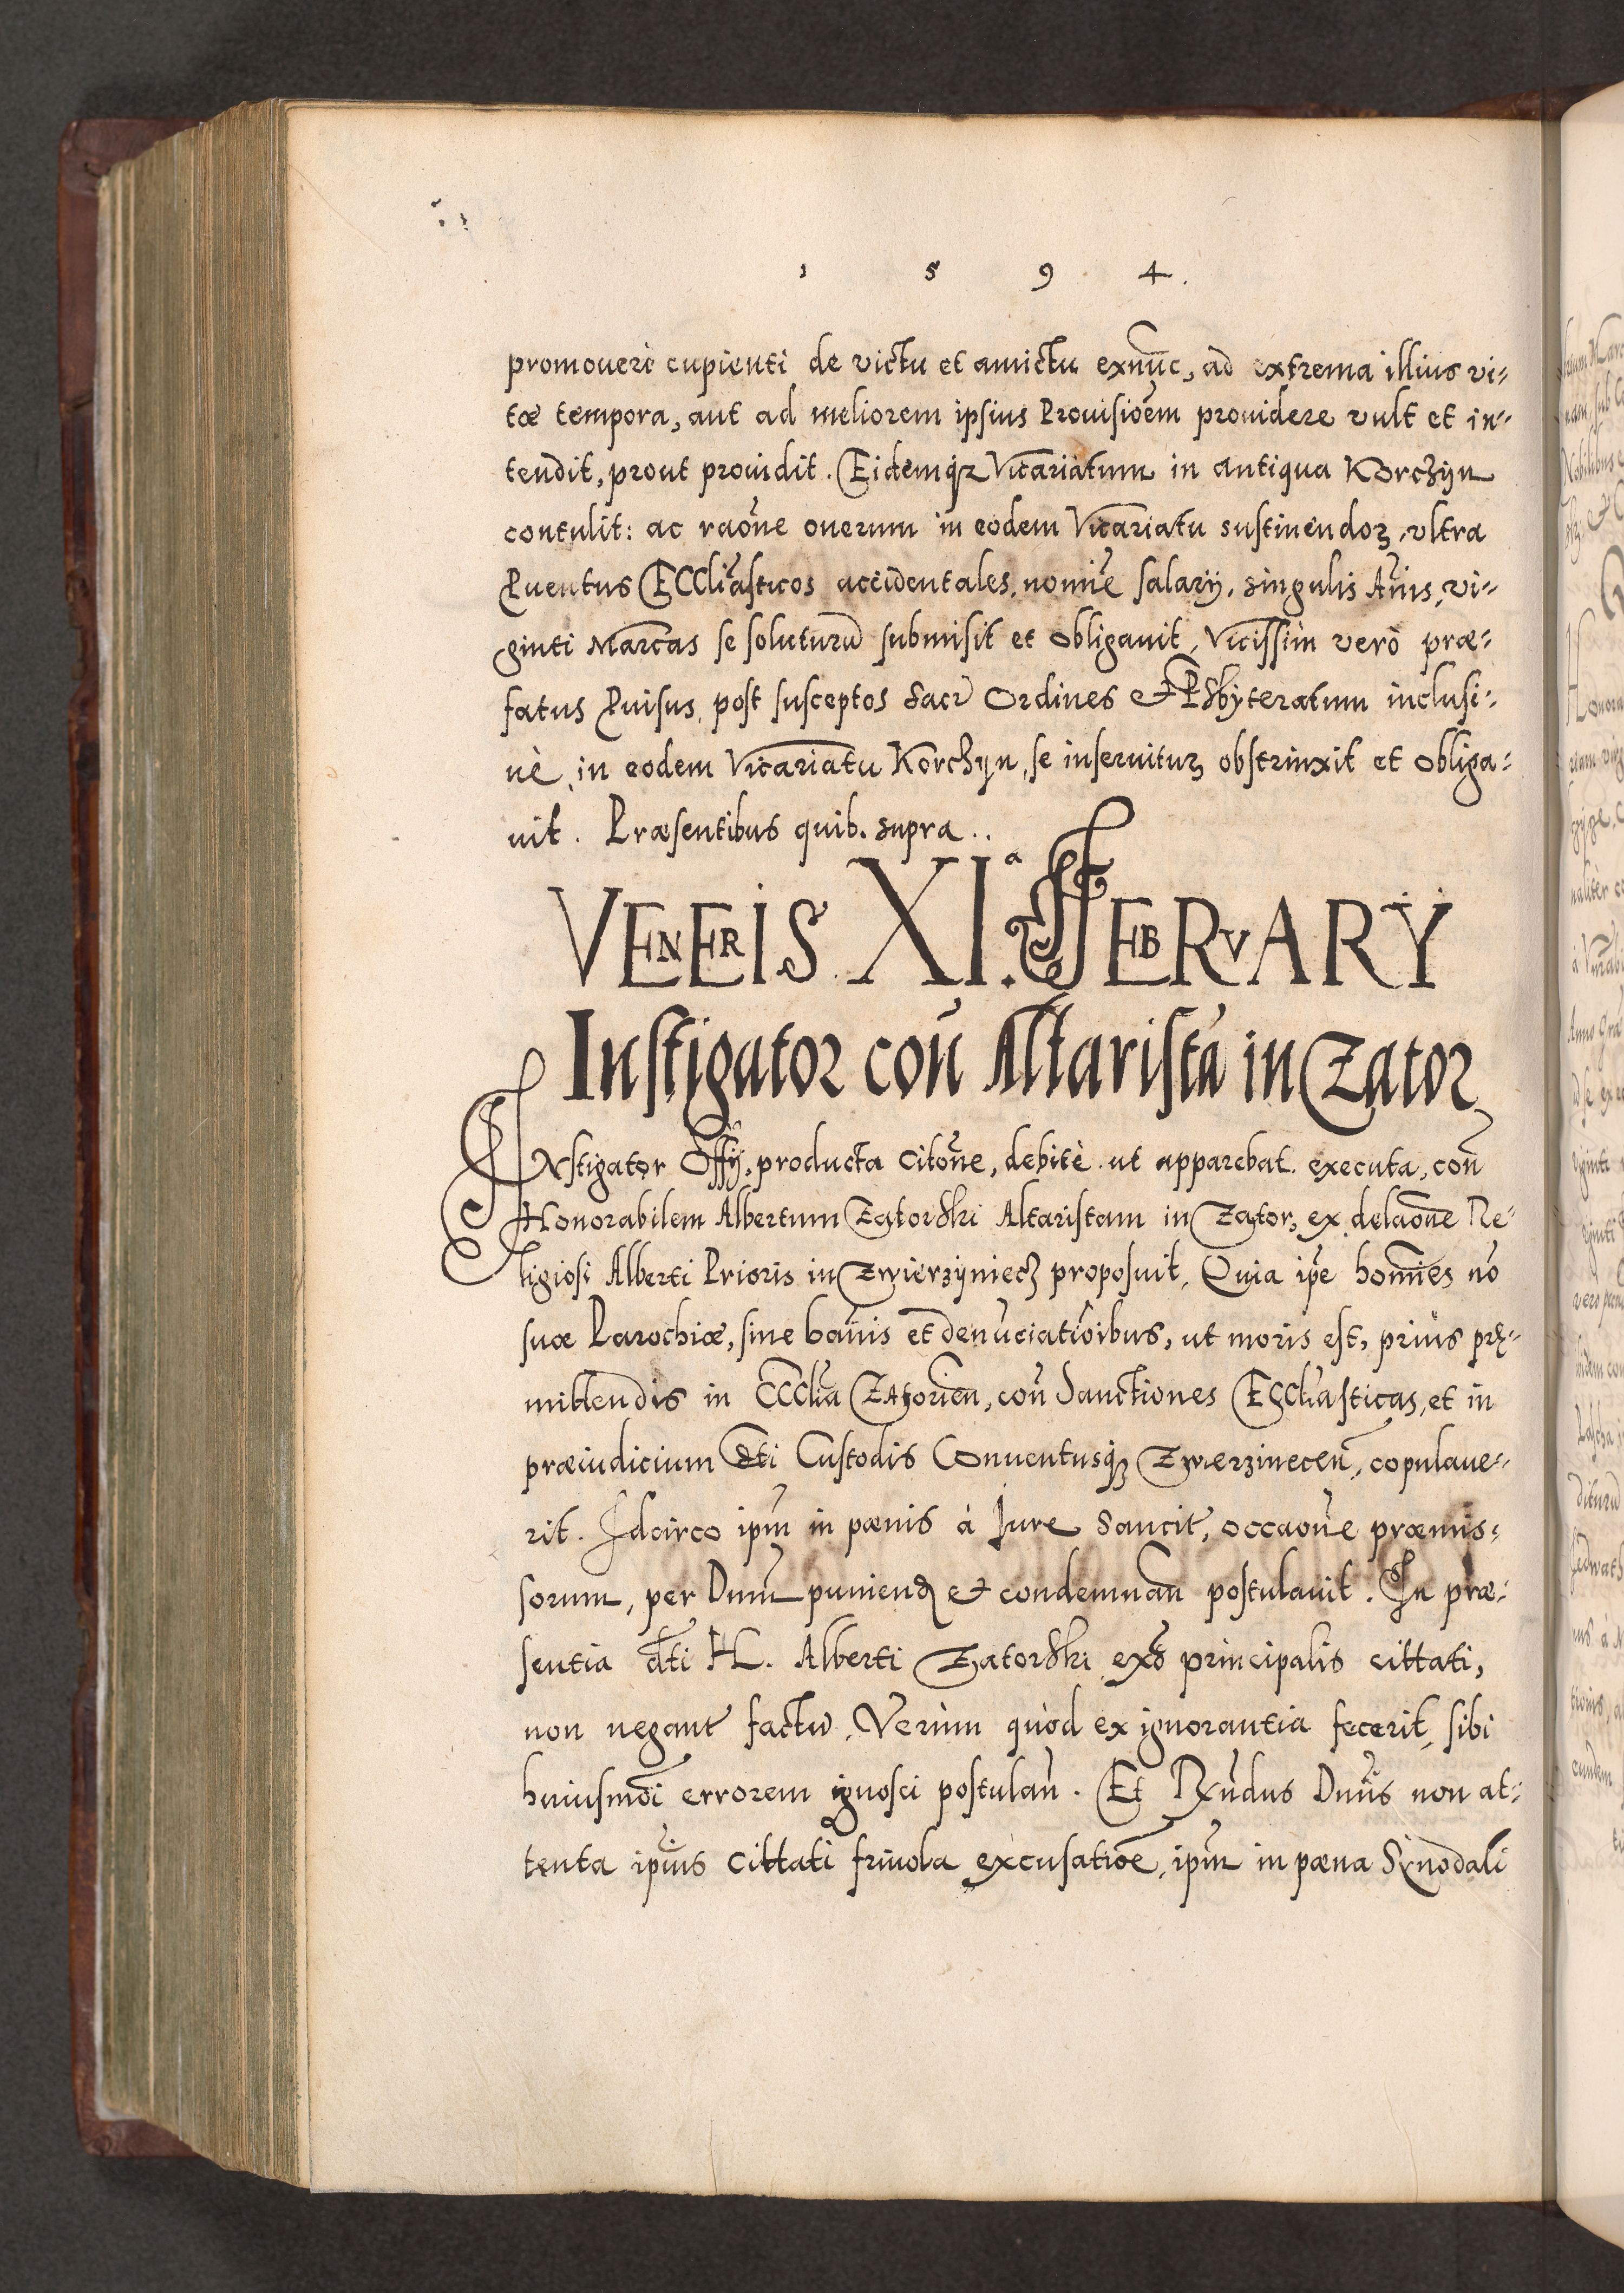 1 5 9 4.
promoueri cupienti de victu et amictu exnũc, ad extrema illius vi-
tæ tempora, aut ad meliorem ipsius Prouisiõem prouidere vult et in-
tendit, prout prouidit. Eidemq̃ Vicariatum in antiqua Korchÿn
contulit: ac raõne onerum in eodem Vicariatu sustinendoꝝ, vltra
Puentus Ecclĩasticos accidentales, nomĩe salarÿ, singulis Añis, vi-
ginti Marcas se soluturũ submisit et obligauit, Vicissim verò præ-
fatus Puisus, post susceptos Sacr̃ Ordines et Psbÿteratum inclusi-
uè, in eodem Vicariatu Korchÿn, se inseruituꝝ obstrinxit et obliga-
uit. Præsentibus quib. supra..
VENERIS XI.ª FFEBRVARŸ
Instigator coñ Altaristã in Zator
INstigator Offÿ, producta citõne, debitè ut apparebat executa, coñ
Honorabilem Albertum Zatorski Altaristam in Zator, ex delaõne Re-
ligiosi Alberti Prioris in Zwierzÿniecz proposuit, Quia ip̃e homĩes nõ
suæ Parochiæ, sine bañis et denũciatiõibus, ut moris est, priùs pr̨-
mittendis in Ecclĩa Zatorieñ, coñ Sanctiones Ecclĩasticas, et in
præiudicium dti Custodis Conuentusq̃ Zwierzineceñ, copulaue-
rit. Idcirco ip̃m in pænis à Iure Sancit̃, occaõne præmis-
sorum, per Dnũm puniend̃ et condemnañ postulauit. In præ-
sentia dti H. Alberti Zatorski exõ principalis cittati,
non negant̃ factũ, Verùm quòd ex ignorantia fecerit, sibi
huiusmõi errorem ignosci postulañ. Et Rx̃ndus Dnũs non at-
tenta ip̃ius cittati friuola excusatiõe, ip̃m in pæna Sÿnodali